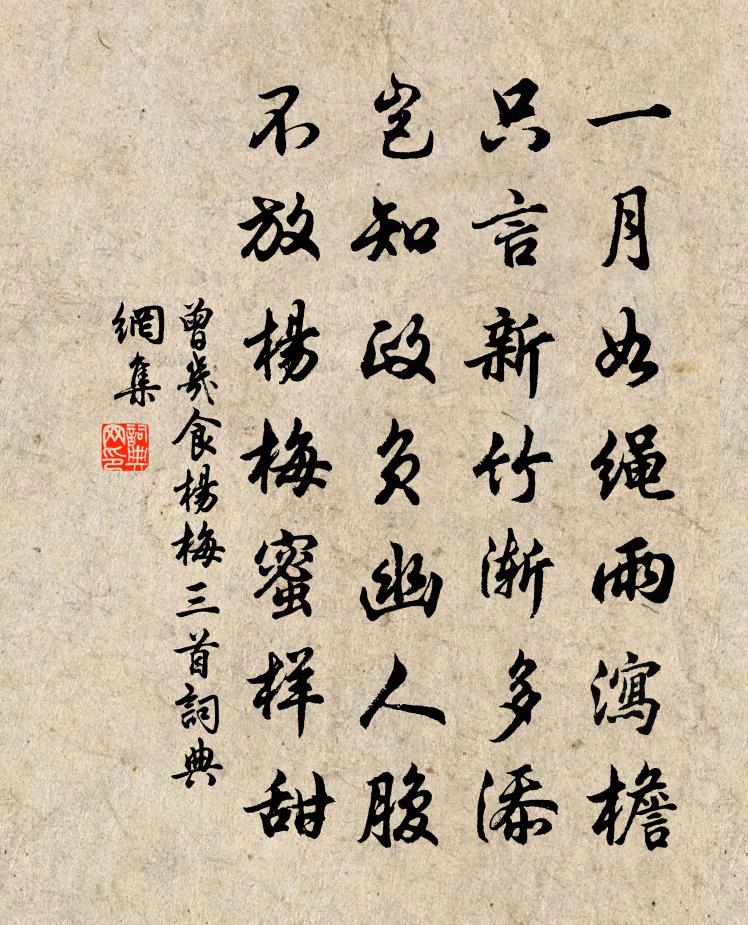 一月如绳雨瀉檐
只言新竹漸多添
豈知政负幽人腹
不放楊梅蜜样甜
曾幾食楊梅三首詞典
網集
詞典網印